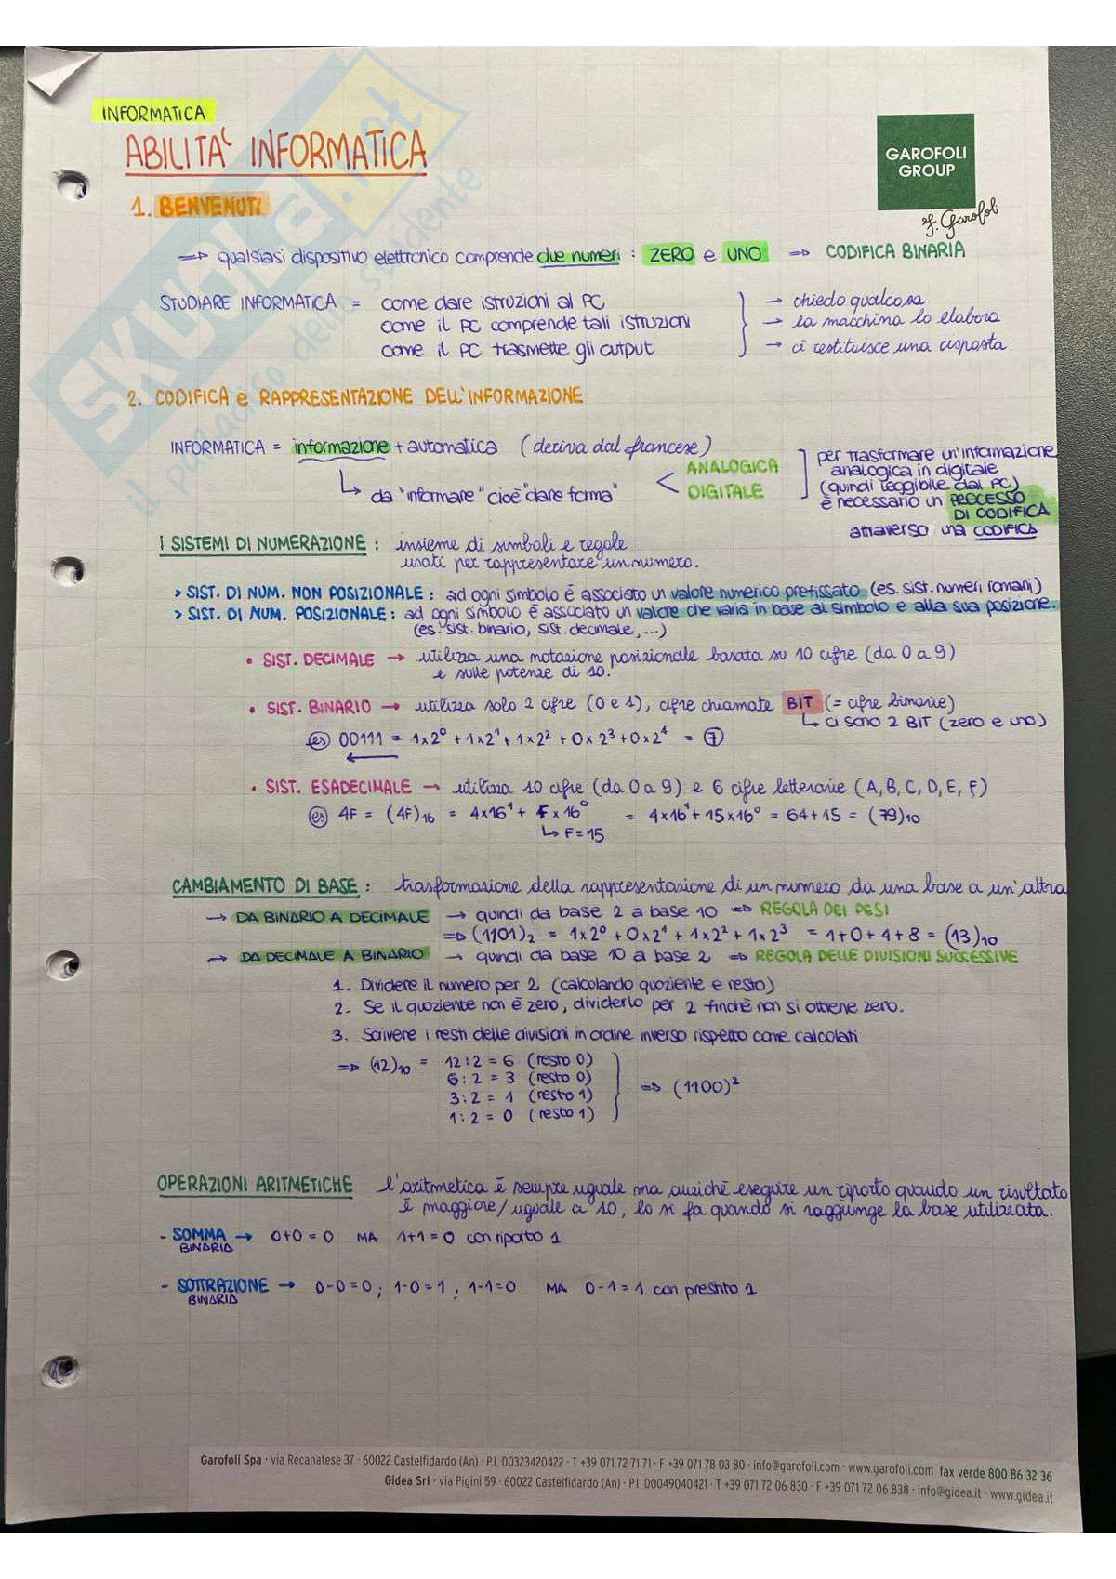 INFORMATICA
ABILITA' INFORMATICA
GAROFOLI
GROUP
f. Garofoli
1. BENVENUTI
=> qualsiasi dispositivo elettronico comprende due numeri : ZERO e UNO => CODIFICA BINARIA
STUDIARE INFORMATICA = come dare istruzioni al PC → chiedo qualcosa
come il PC comprende tali istruzioni → la macchina lo elabora
come il PC trasmette gli output → ci restituisce una risposta
2. CODIFICA e RAPPRESENTAZIONE DELL'INFORMAZIONE
INFORMATICA = informazione + automatica (deriva dal francese)
↳ da "informare" cioè "dare forma" < ANALOGICA
DIGITALE
per trasformare un'informazione
analogica in digitale
(quindi leggibile dal PC)
è necessario un PROCESSO
DI CODIFICA
attraverso una CODIFICA
I SISTEMI DI NUMERAZIONE : insieme di simboli e regole
usati per rappresentare un numero.
> SIST. DI NUM. NON POSIZIONALE : ad ogni simbolo è associato un valore numerico prefissato (es. sist. numeri romani)
> SIST. DI NUM. POSIZIONALE : ad ogni simbolo è associato un valore che varia in base al simbolo e alla sua posizione.
(es. sist. binario, sist. decimale, ...)
• SIST. DECIMALE → utilizza una notazione posizionale basata su 10 cifre (da 0 a 9)
e sulle potenze di 10.
• SIST. BINARIO → utilizza solo 2 cifre (0 e 1), cifre chiamate BIT (= cifre binarie)
↳ ci sono 2 BIT (zero e uno)
es 00111 = 1x2⁰ + 1x2¹ + 1x2² + 0x2³ + 0x2⁴ = 7
• SIST. ESADECIMALE → utilizza 10 cifre (da 0 a 9) e 6 cifre letterarie (A, B, C, D, E, F)
es 4F = (4F)₁₆ = 4x16¹ + F x16⁰ = 4x16¹ + 15x16⁰ = 64+15 = (79)₁₀
↳ F=15
CAMBIAMENTO DI BASE : trasformazione della rappresentazione di un numero da una base a un'altra
→ DA BINARIO A DECIMALE → quindi da base 2 a base 10 => REGOLA DEI PESI
=> (1101)₂ = 1x2⁰ + 0x2¹ + 1x2² + 1x2³ = 1+0+4+8 = (13)₁₀
→ DA DECIMALE A BINARIO → quindi da base 10 a base 2 => REGOLA DELLE DIVISIONI SUCCESSIVE
1. Dividere il numero per 2 (calcolando quoziente e resto)
2. Se il quoziente non è zero, dividerlo per 2 finchè non si ottiene zero.
3. Scrivere i resti delle divisioni in ordine inverso rispetto come calcolati
=> (12)₁₀ = 12:2 = 6 (resto 0)
6:2 = 3 (resto 0)
3:2 = 1 (resto 1)
1:2 = 0 (resto 1)
=> (1100)²
OPERAZIONI ARITMETICHE l'aritmetica è sempre uguale ma anzichè eseguire un riporto quando un risultato
è maggiore/uguale a 10, lo si fa quando si raggiunge la base utilizzata.
- SOMMA → 0+0=0 MA 1+1=0 con riporto 1
BINARIA
- SOTTRAZIONE → 0-0=0; 1-0=1; 1-1=0 MA 0-1=1 con prestito 1
BINARIA
Garofoli Spa · via Recanatese 37 · 60022 Castelfidardo (An) · P.I. 00323420422 · T +39 071 72 71 71 · F +39 071 78 03 80 · info@garofoli.com · www.garofoli.com fax verde 800 86 32 36
Gidea Srl · via Picini 59 · 60022 Castelfidardo (An) · P.I. 00049040421 · T +39 071 72 06 830 · F +39 071 72 06 838 · info@gidea.it · www.gidea.it
SKUOLA.net
il paradiso dello studente